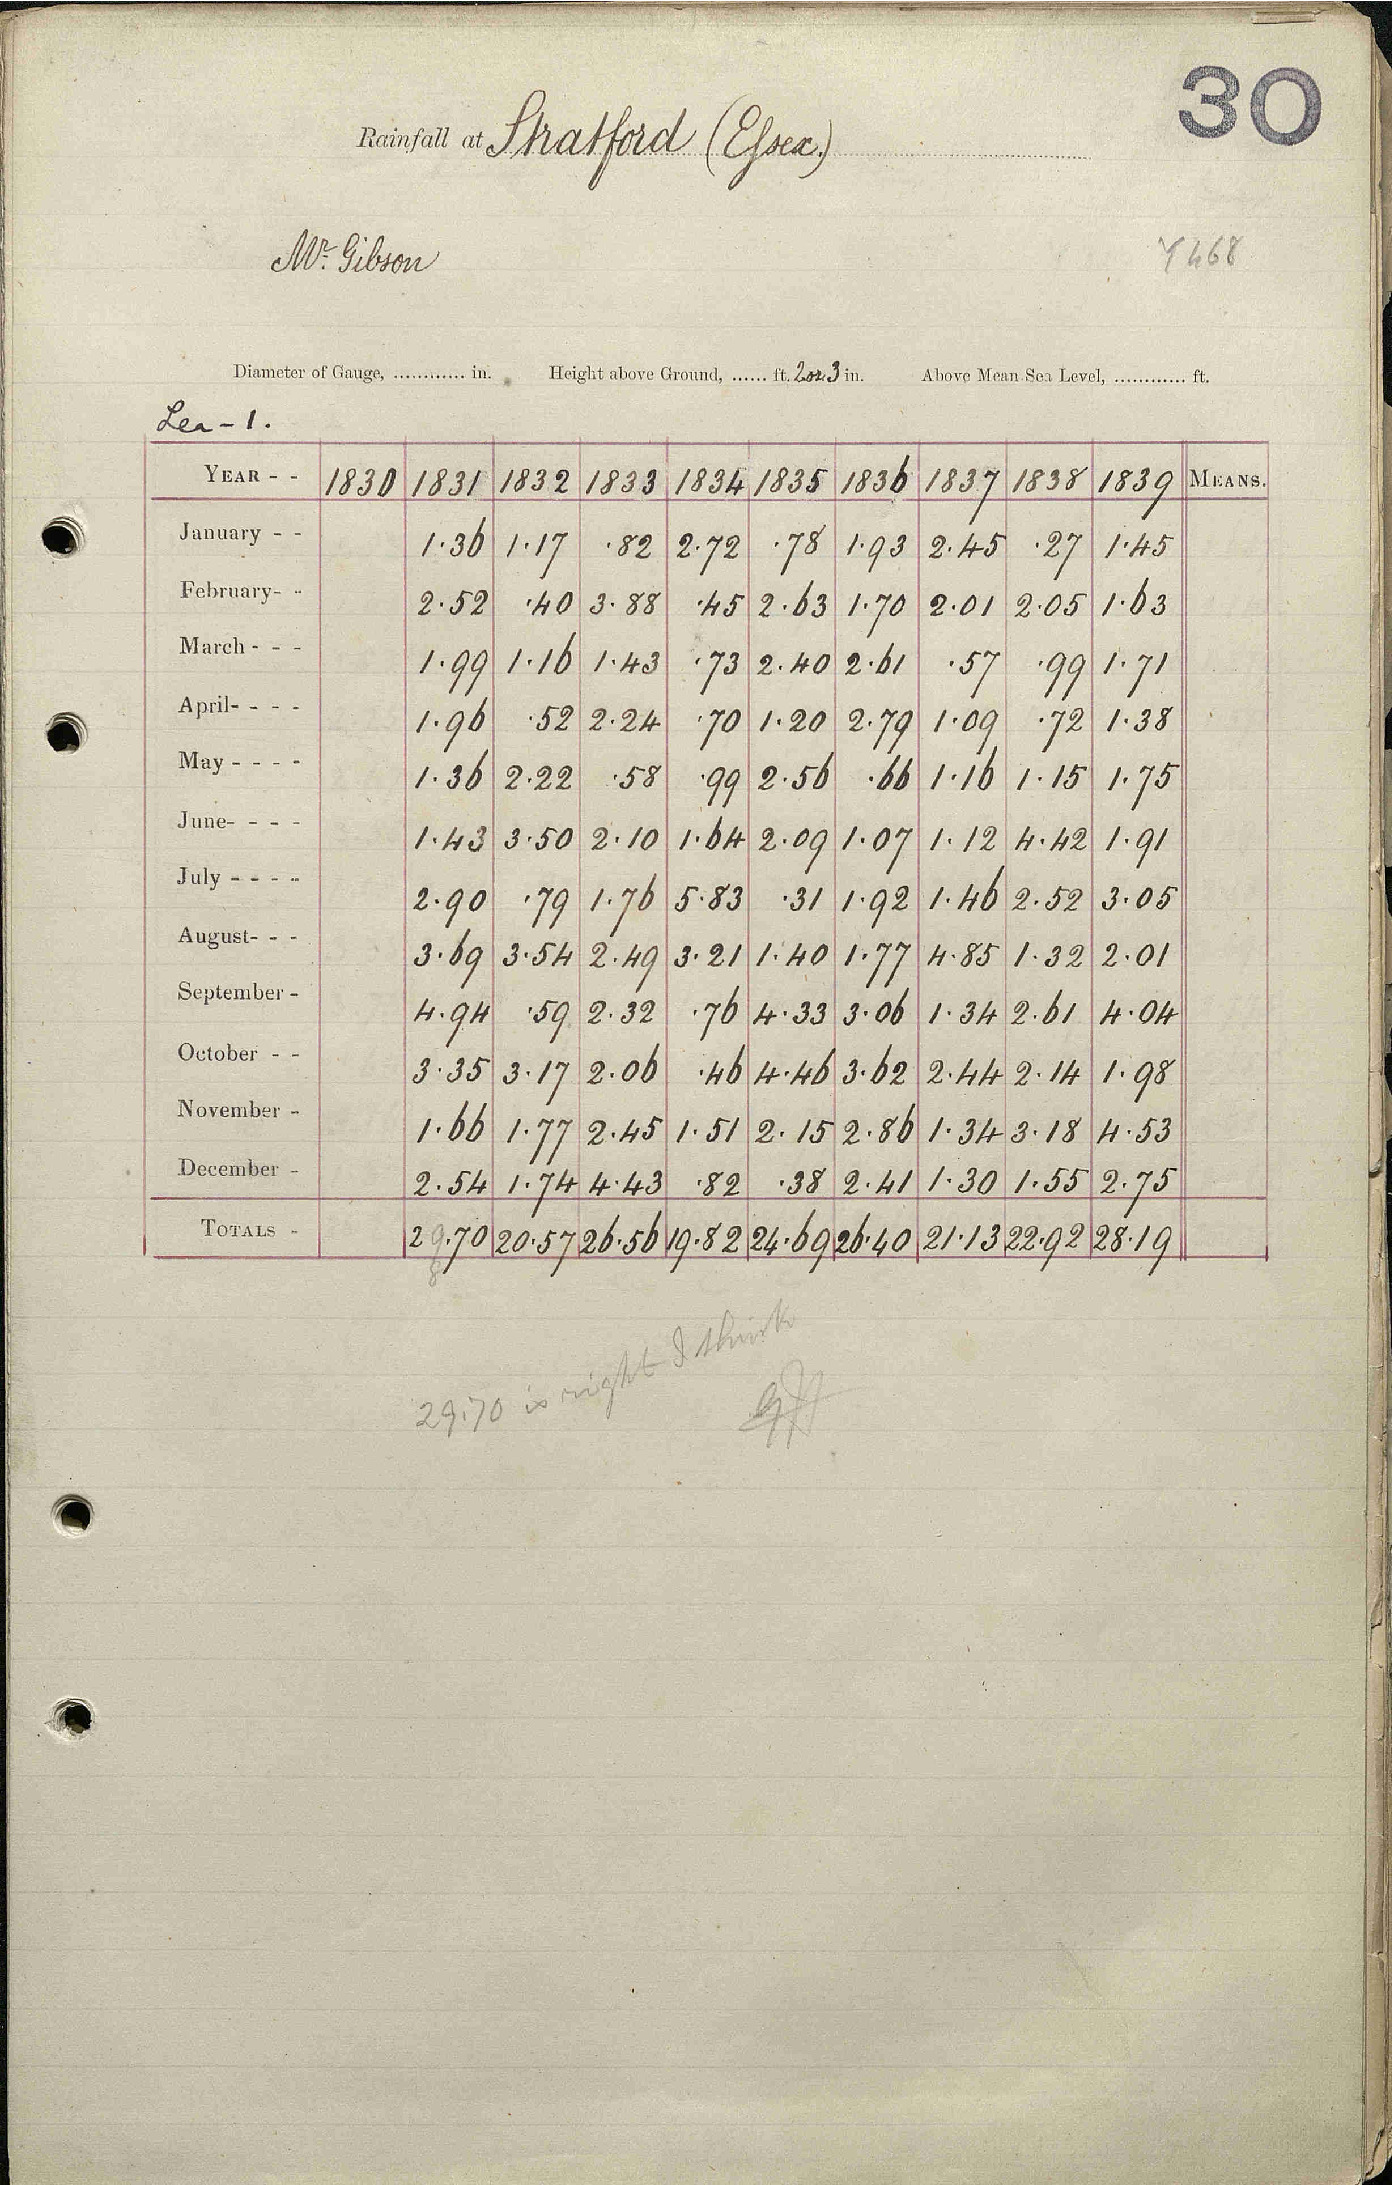 30
Rainfall at Stratford (Essex.)
Mr. Gibson
Diameter of Gauge, ............ in. Height above Ground, ...... ft. 2 or 3 in. Above Mean Sea Level, ............ ft.
Lea - 1.
YEAR - - 1830 1831 1832 1833 1834 1835 1836 1837 1838 1839 MEANS.
January - - 1.36 1.17 .82 2.72 .78 1.93 2.45 .27 1.45
February- - 2.52 .40 3.88 .45 2.63 1.70 2.01 2.05 1.63
March - - - 1.99 1.16 1.43 .73 2.40 2.61 .57 .99 1.71
April- - - - 1.96 .52 2.24 .70 1.20 2.79 1.09 .72 1.38
May - - - - 1.36 2.22 .58 .99 2.56 .66 1.16 1.15 1.75
June- - - - 1.43 3.50 2.10 1.64 2.09 1.07 1.12 4.42 1.91
July - - - - 2.90 .79 1.76 5.83 .31 1.92 1.46 2.52 3.05
August- - - 3.69 3.54 2.49 3.21 1.40 1.77 4.85 1.32 2.01
September - 4.94 .59 2.32 .76 4.33 3.06 1.34 2.61 4.04
October - - 3.35 3.17 2.06 .46 4.46 3.62 2.44 2.14 1.98
November - 1.66 1.77 2.45 1.51 2.15 2.86 1.34 3.18 4.53
December - 2.54 1.74 4.43 .82 .38 2.41 1.30 1.55 2.75
TOTALS - 29.70 20.57 26.56 19.82 24.69 26.40 21.13 22.92 28.19
8
29.70 is right I think